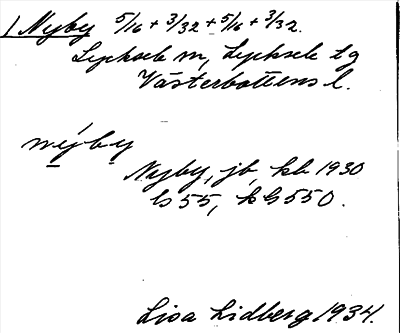 1 Nyby 5/16 + 3/32 + 5/16 + 3/32.
Lycksele m, Lycksele tg
Västerbottens l.
nýby
Nyby, jb, kb 1930
ls 55, h G 550.
Lisa Lidberg 1934.